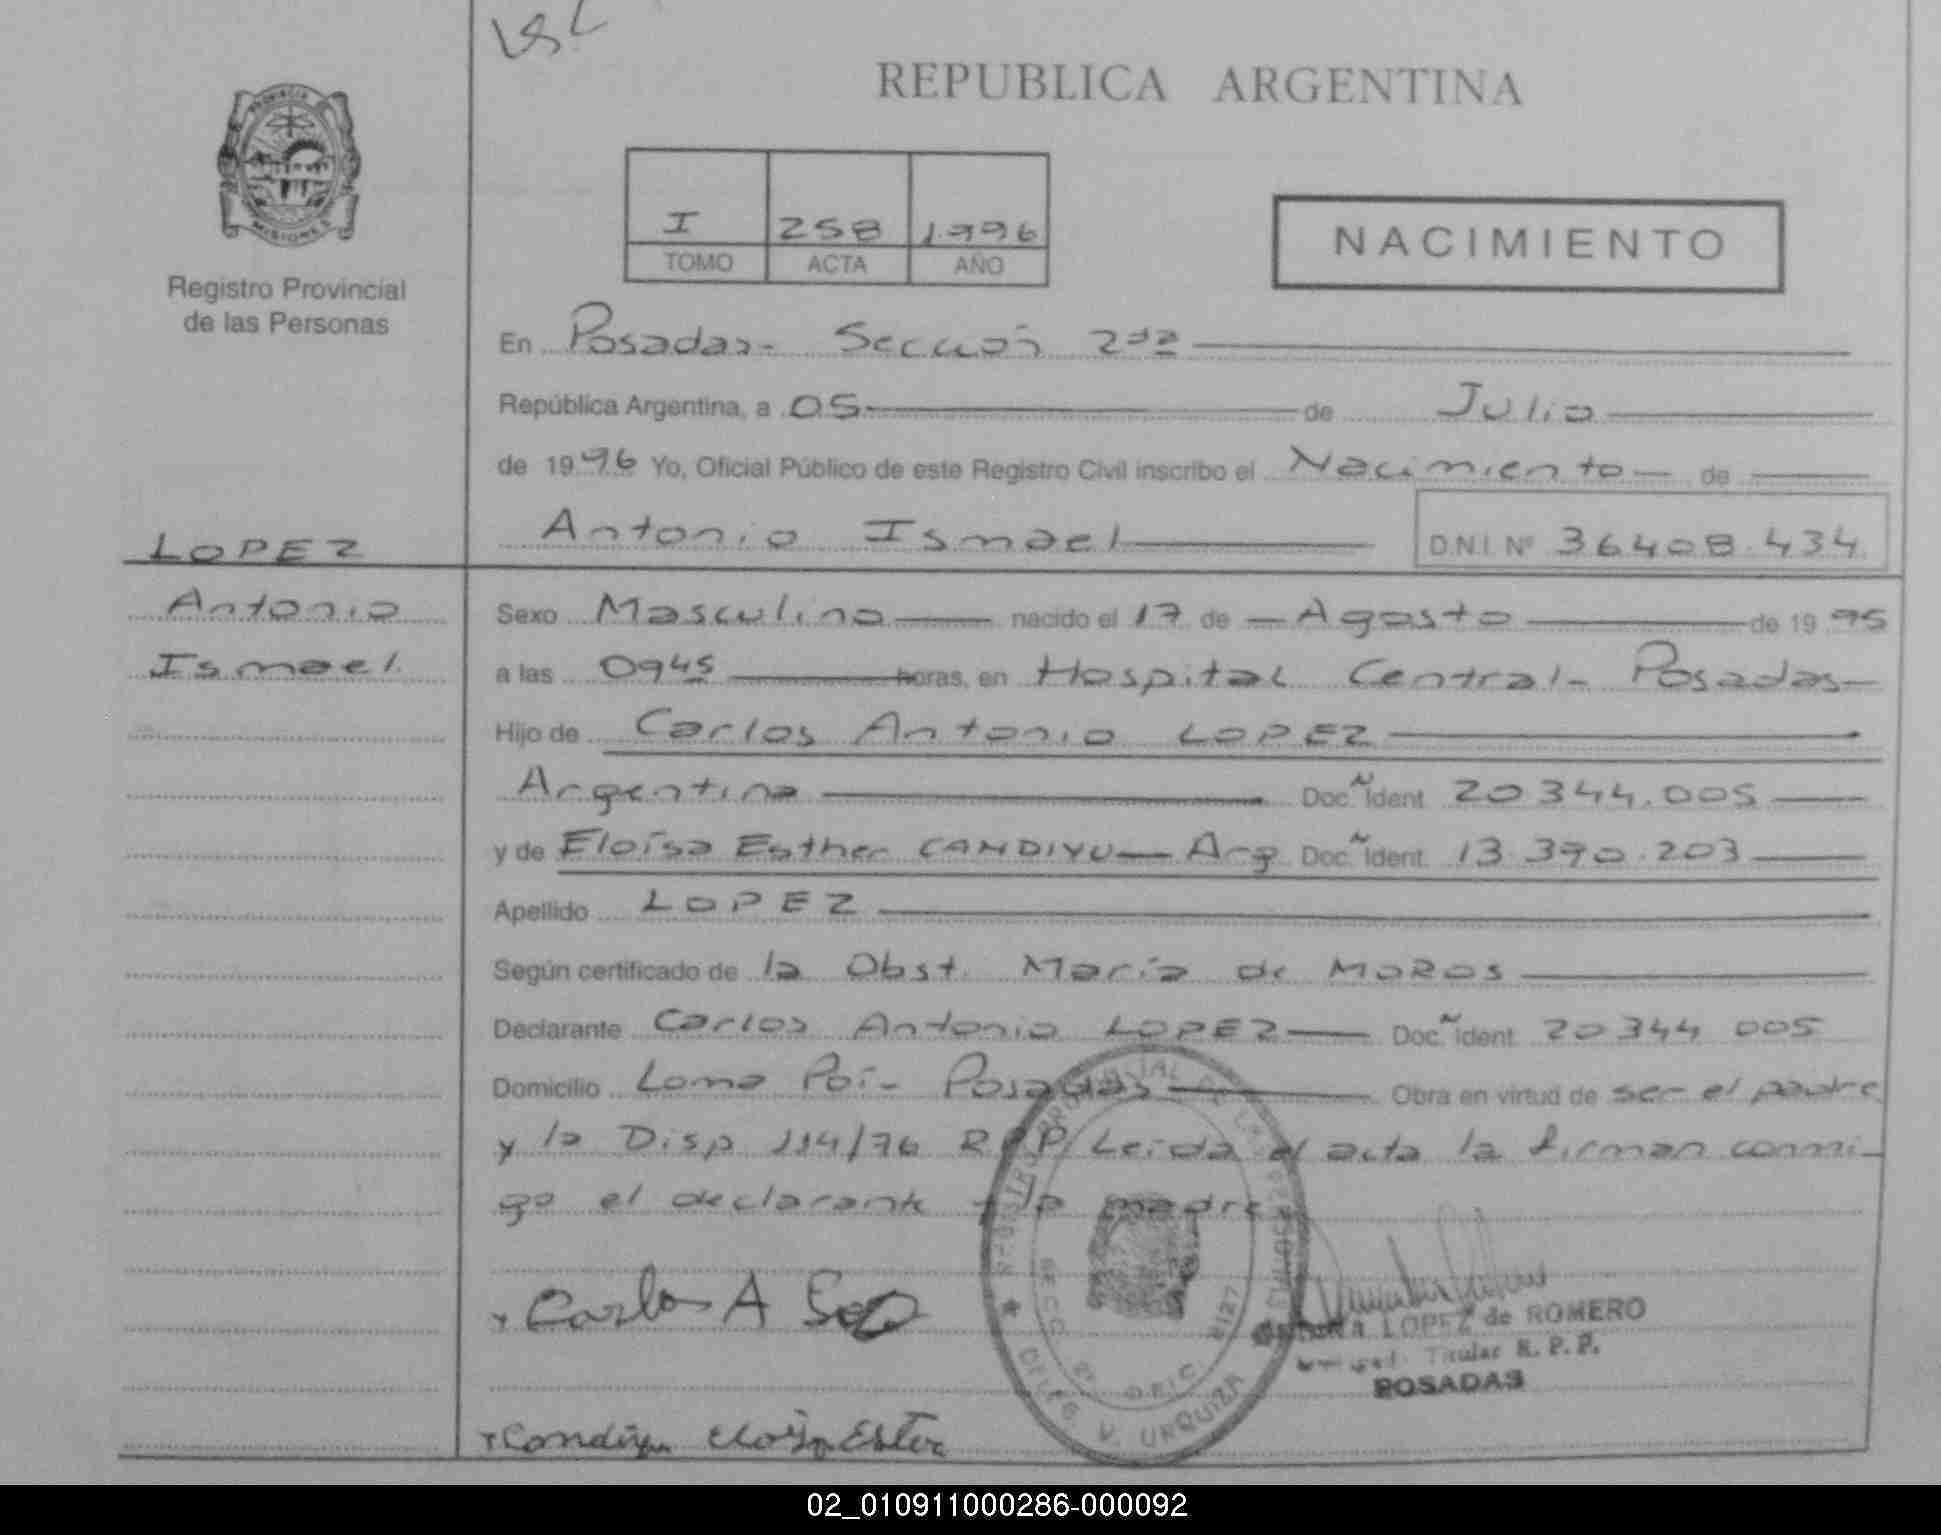 REPUBLICA ARGENTINA
PROVINCIA DE
MISIONES
Registro Provincial
de las Personas
I 258 1.996
TOMO ACTA AÑO
NACIMIENTO
En Posadas- Sección 2da
República Argentina, a 05 de Julio
de 1996 Yo, Oficial Público de este Registro Civil inscribo el Nacimiento de
Antonio Ismael D.N.I. Nº 36408.434
LOPEZ
Antonio
Ismael
Sexo Masculino nacido el 17 de Agosto de 1995
a las 0945 horas, en Hospital Central- Posadas-
Hijo de Carlos Antonio LOPEZ
Argentina Doc. Ident. 20344.005
y de Eloísa Esther CANDIYU Arg Doc. Ident. 13.390.203
Apellido LOPEZ
Según certificado de la Obst. María de MOROS
Declarante Carlos Antonio LOPEZ Doc. Ident. 20344 005
Domicilio Loma Poí- Posadas Obra en virtud de ser el padre
y la Disp 114/76 RPP/ Leida el acta la firman conmi-
go el declarante y la madre
Carlos A
LOPEZ de ROMERO
Titular R.P.P.
POSADAS
SECC. 2º OFIC.
DELEG. V. URQUIZA
02_010911000286-000092